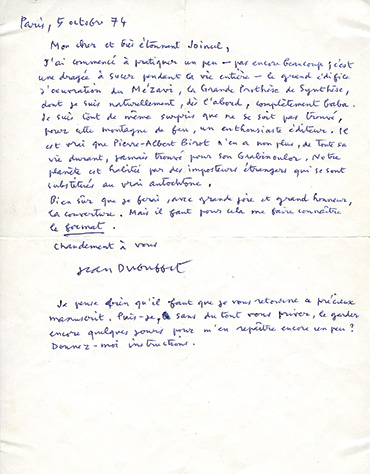 Paris, 5 octobre 74
Mon cher et très étonnant Joinul,
J'ai commencé à pratiquer un peu – pas encore beaucoup, c'est
une dragée à sucer pendant la vie entière – le grand édifice
d'oeuvration du Mézavi, la Grande Prosthèse de Synthèse,
dont je suis naturellement, dès l'abord, complètement baba.
Je suis tout de même surpris que ne se soit pas trouvé,
pour cette montagne de feu, un enthousiaste éditeur. Il
est vrai que Pierre-Albert Birot n'en a non plus, de toute sa
vie durant, jamais trouvé pour son Grabinoulor. Notre
planète est habitée par des imposteurs étrangers qui se sont
substitués au vrai autochtone.
Bien sûr que je ferai, avec grande joie et grand honneur,
la couverture. Mais il faut pour cela me faire connaître
le format.
Chaudement à vous
Jean Dubuffet
Je pense bien qu'il faut que je vous retourne ce précieux
manuscrit. Puis-je, sans du tout vous priver, le garder
encore quelques jours pour m'en repaître encore un peu ?
Donnez-moi instructions.